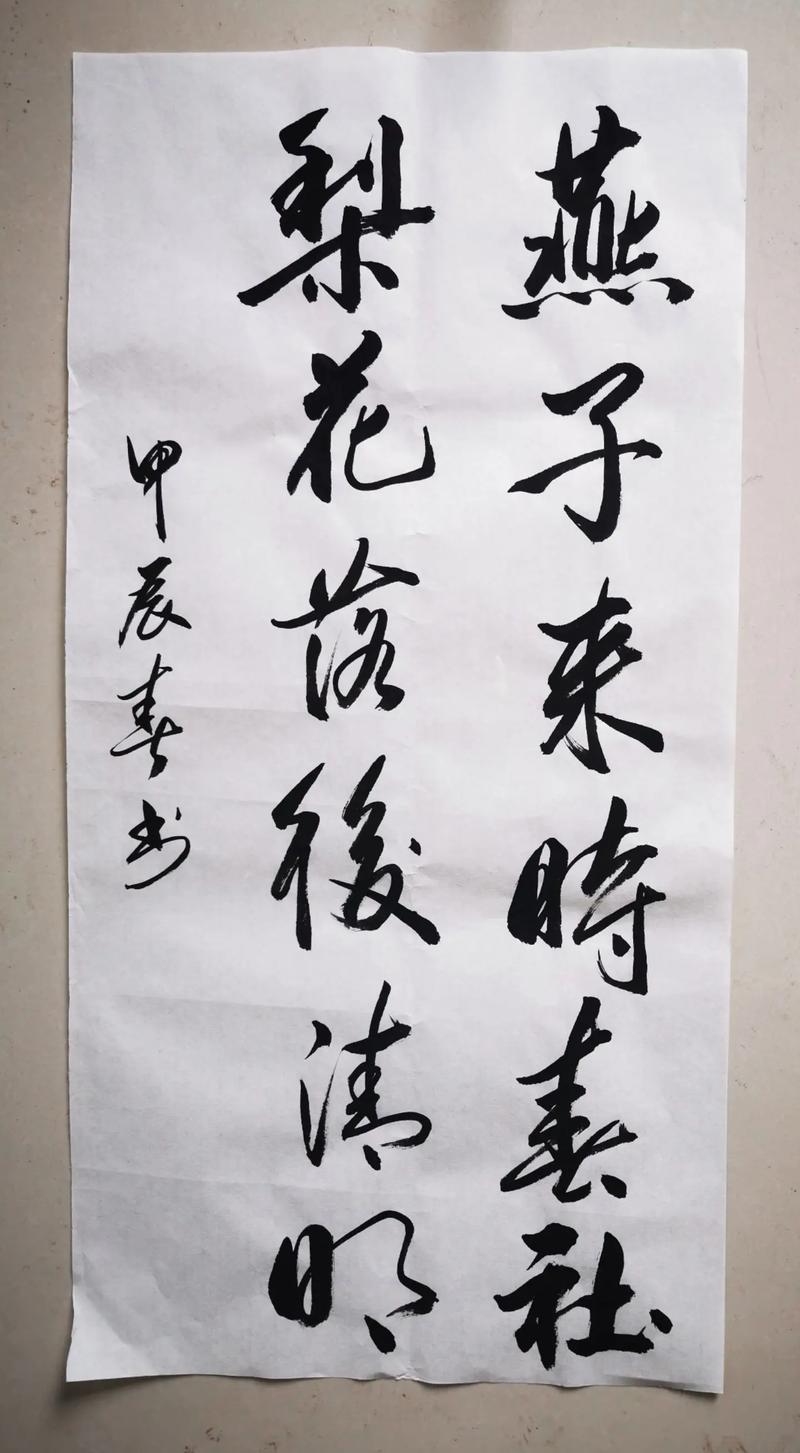 燕子來時春社
梨花落後清明
甲辰春书